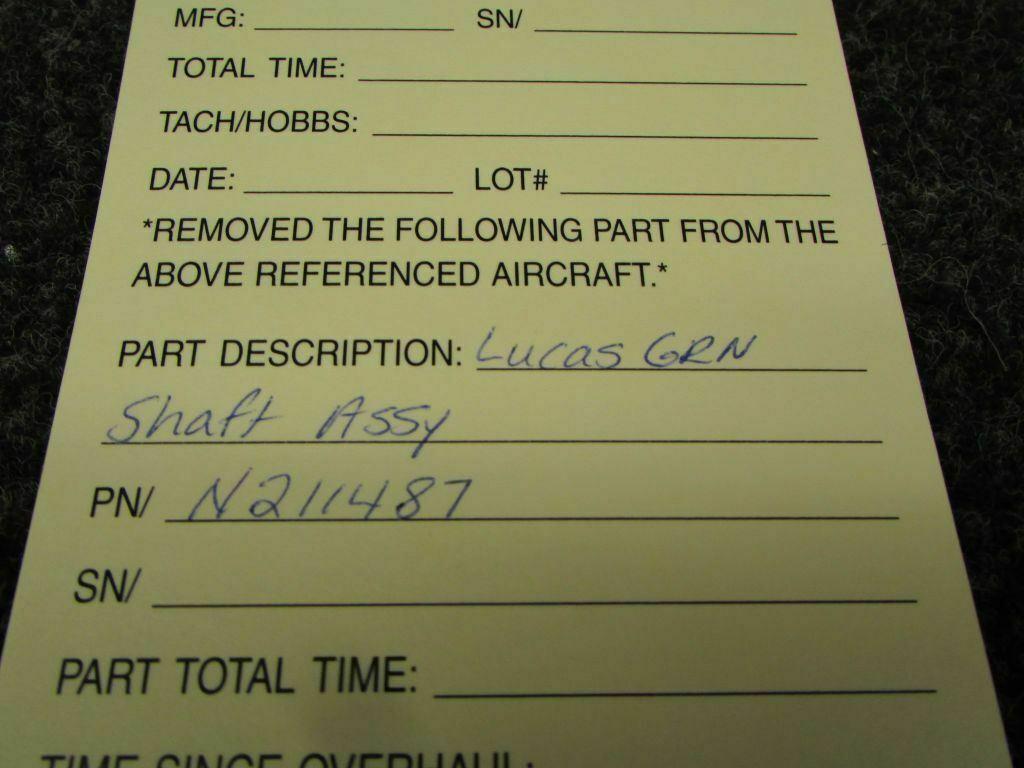 MFG: SN/
TOTAL TIME:
TACH/HOBBS:
DATE: LOT#
*REMOVED THE FOLLOWING PART FROM THE
ABOVE REFERENCED AIRCRAFT.*
PART DESCRIPTION: Lucas GRN
Shaft Assy
PN/ N211487
SN/
PART TOTAL TIME:
TIME SINCE OVERHAUL: